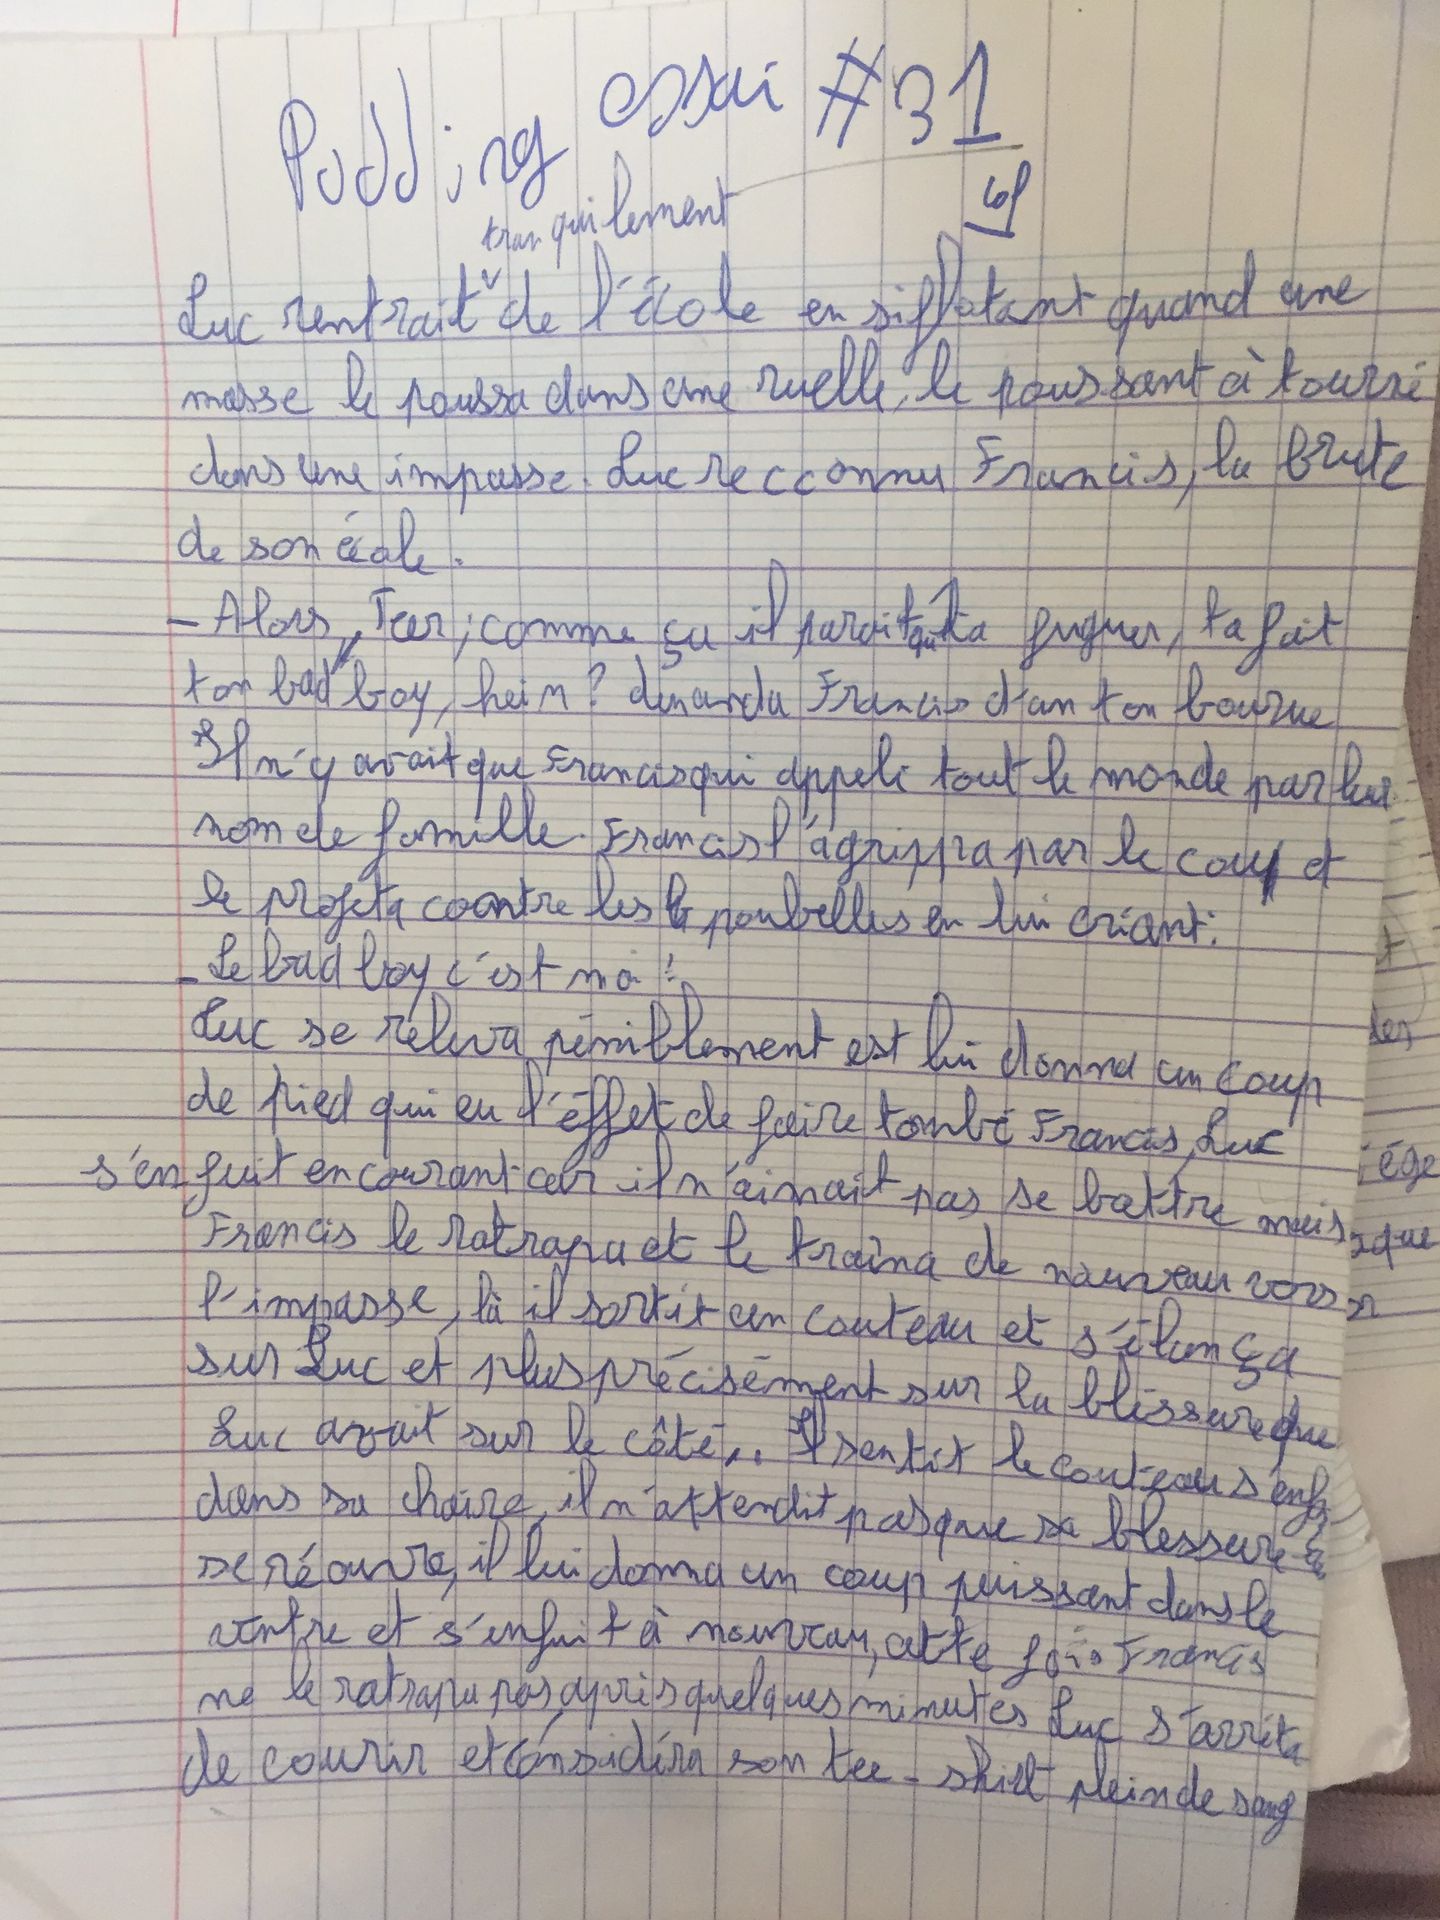 Pudding essai #31
tranquilement
Luc rentrait de l'école en siflotant quand une
masse le poussa dans une ruelle, le poussant à tourné
dans une impasse. Luc recconnu Francis, la brute
de son école.
- Alors, Teer, comme ça il parait qu ta fuguer, ta fait
ton bad boy, hein? demanda Francis d'an ton bourue
Il n'y avait que Francis qui appelé tout le monde par leur
nom de famille. Francis l'agrippa par le cou et
le projeta contre les poubelles en lui criant:
- Le bad boy c'est moi!
Luc se releva péniblement est lui donna un coup
de pied qui eu l'éffet de faire tombé Francis, Luc
s'en fuit en courant car il n'aimait pas se battre mais
Francis le ratrapa et le traîna de nouveau vers
l'impasse, là il sortit un couteau et s'élança
sur Luc et plus précisément sur la blessure que
Luc avait sur le côté... Il sentit le couteau s'enf
dans sa chaire, il n'attendit pas que sa blessure
se réouvre, il lui donna un coup puissant dans le
ventre et s'enfuit à nouveau, cette fois Francis
ne le ratrapa pas, après quelques minutes Luc s'arrêta
de courir et considéra son tee-shirt plein de sang
ége
que